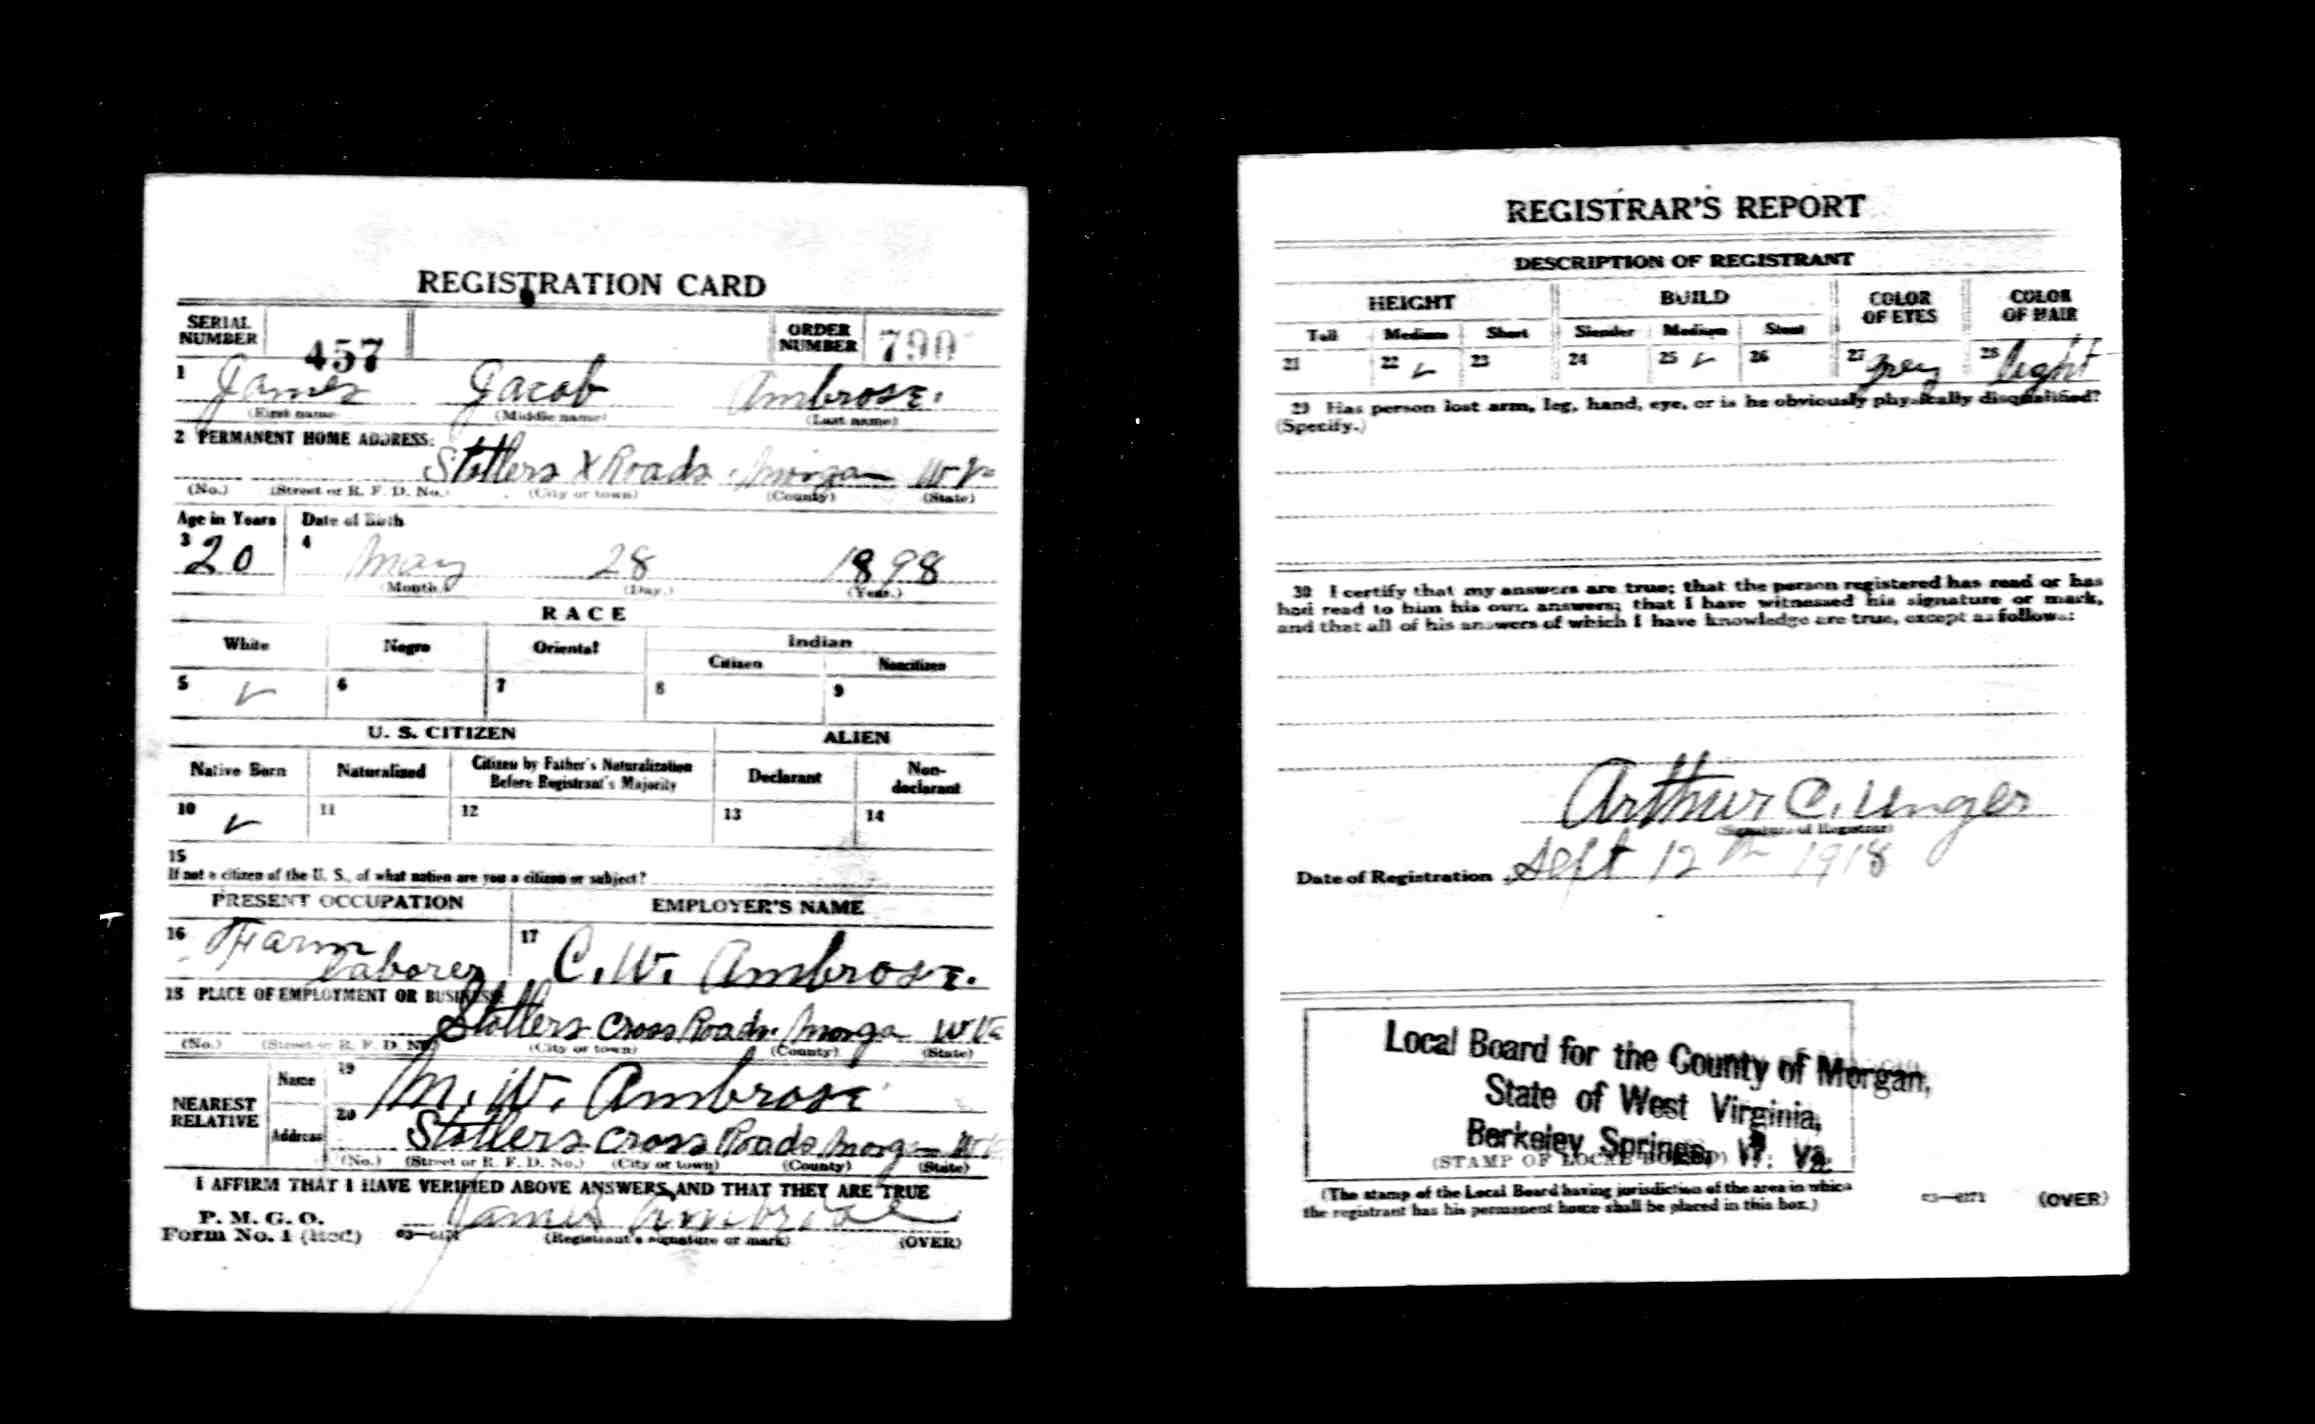 REGISTRATION CARD
SERIAL NUMBER 457 ORDER NUMBER 790
1 James Jacob Ambrose.
(First name) (Middle name) (Last name)
2 PERMANENT HOME ADDRESS:
Stotlers X Roads Morgan W Va
(No.) (Street or R. F. D. No.) (City or town) (County) (State)
Age in Years Date of Birth
3 20 4 May 28 1898
(Month.) (Day.) (Year.)
RACE
White Negro Oriental Indian
Citizen Noncitizen
5 ✓ 6 7 8 9
U. S. CITIZEN ALIEN
Native Born Naturalized Citizen by Father's Naturalization Before Registrant's Majority Declarant Non-declarant
10 ✓ 11 12 13 14
15
If not a citizen of the U. S., of what nation are you a citizen or subject?
PRESENT OCCUPATION EMPLOYER'S NAME
16 Farm laborer 17 C. W. Ambrose.
18 PLACE OF EMPLOYMENT OR BUSINESS:
Stotlers Cross Roads Morgan W Va
(No.) (Street or R. F. D. No.) (City or town) (County) (State)
NEAREST RELATIVE
Name 19 M. W. Ambrose
Address 20 Stotlers Cross Roads Morgan W Va
(No.) (Street or R. F. D. No.) (City or town) (County) (State)
I AFFIRM THAT I HAVE VERIFIED ABOVE ANSWERS AND THAT THEY ARE TRUE
P. M. G. O.
Form No. 1 (Red) James Ambrose
(Registrant's signature or mark) (OVER)
REGISTRAR'S REPORT
DESCRIPTION OF REGISTRANT
HEIGHT BUILD COLOR OF EYES COLOR OF HAIR
Tall Medium Short Slender Medium Stout
21 22 ✓ 23 24 25 ✓ 26 27 Grey 28 light
29 Has person lost arm, leg, hand, eye, or is he obviously physically disqualified?
(Specify.)
30 I certify that my answers are true; that the person registered has read or has
had read to him his own answers; that I have witnessed his signature or mark,
and that all of his answers of which I have knowledge are true, except as follows:
Arthur C. Unger
(Signature of Registrar)
Date of Registration Sept 12th 1918
Local Board for the County of Morgan,
State of West Virginia,
Berkeley Springs, W. Va.
(STAMP OF LOCAL BOARD)
(The stamp of the Local Board having jurisdiction of the area in which
the registrant has his permanent home shall be placed in this box.)
(OVER)